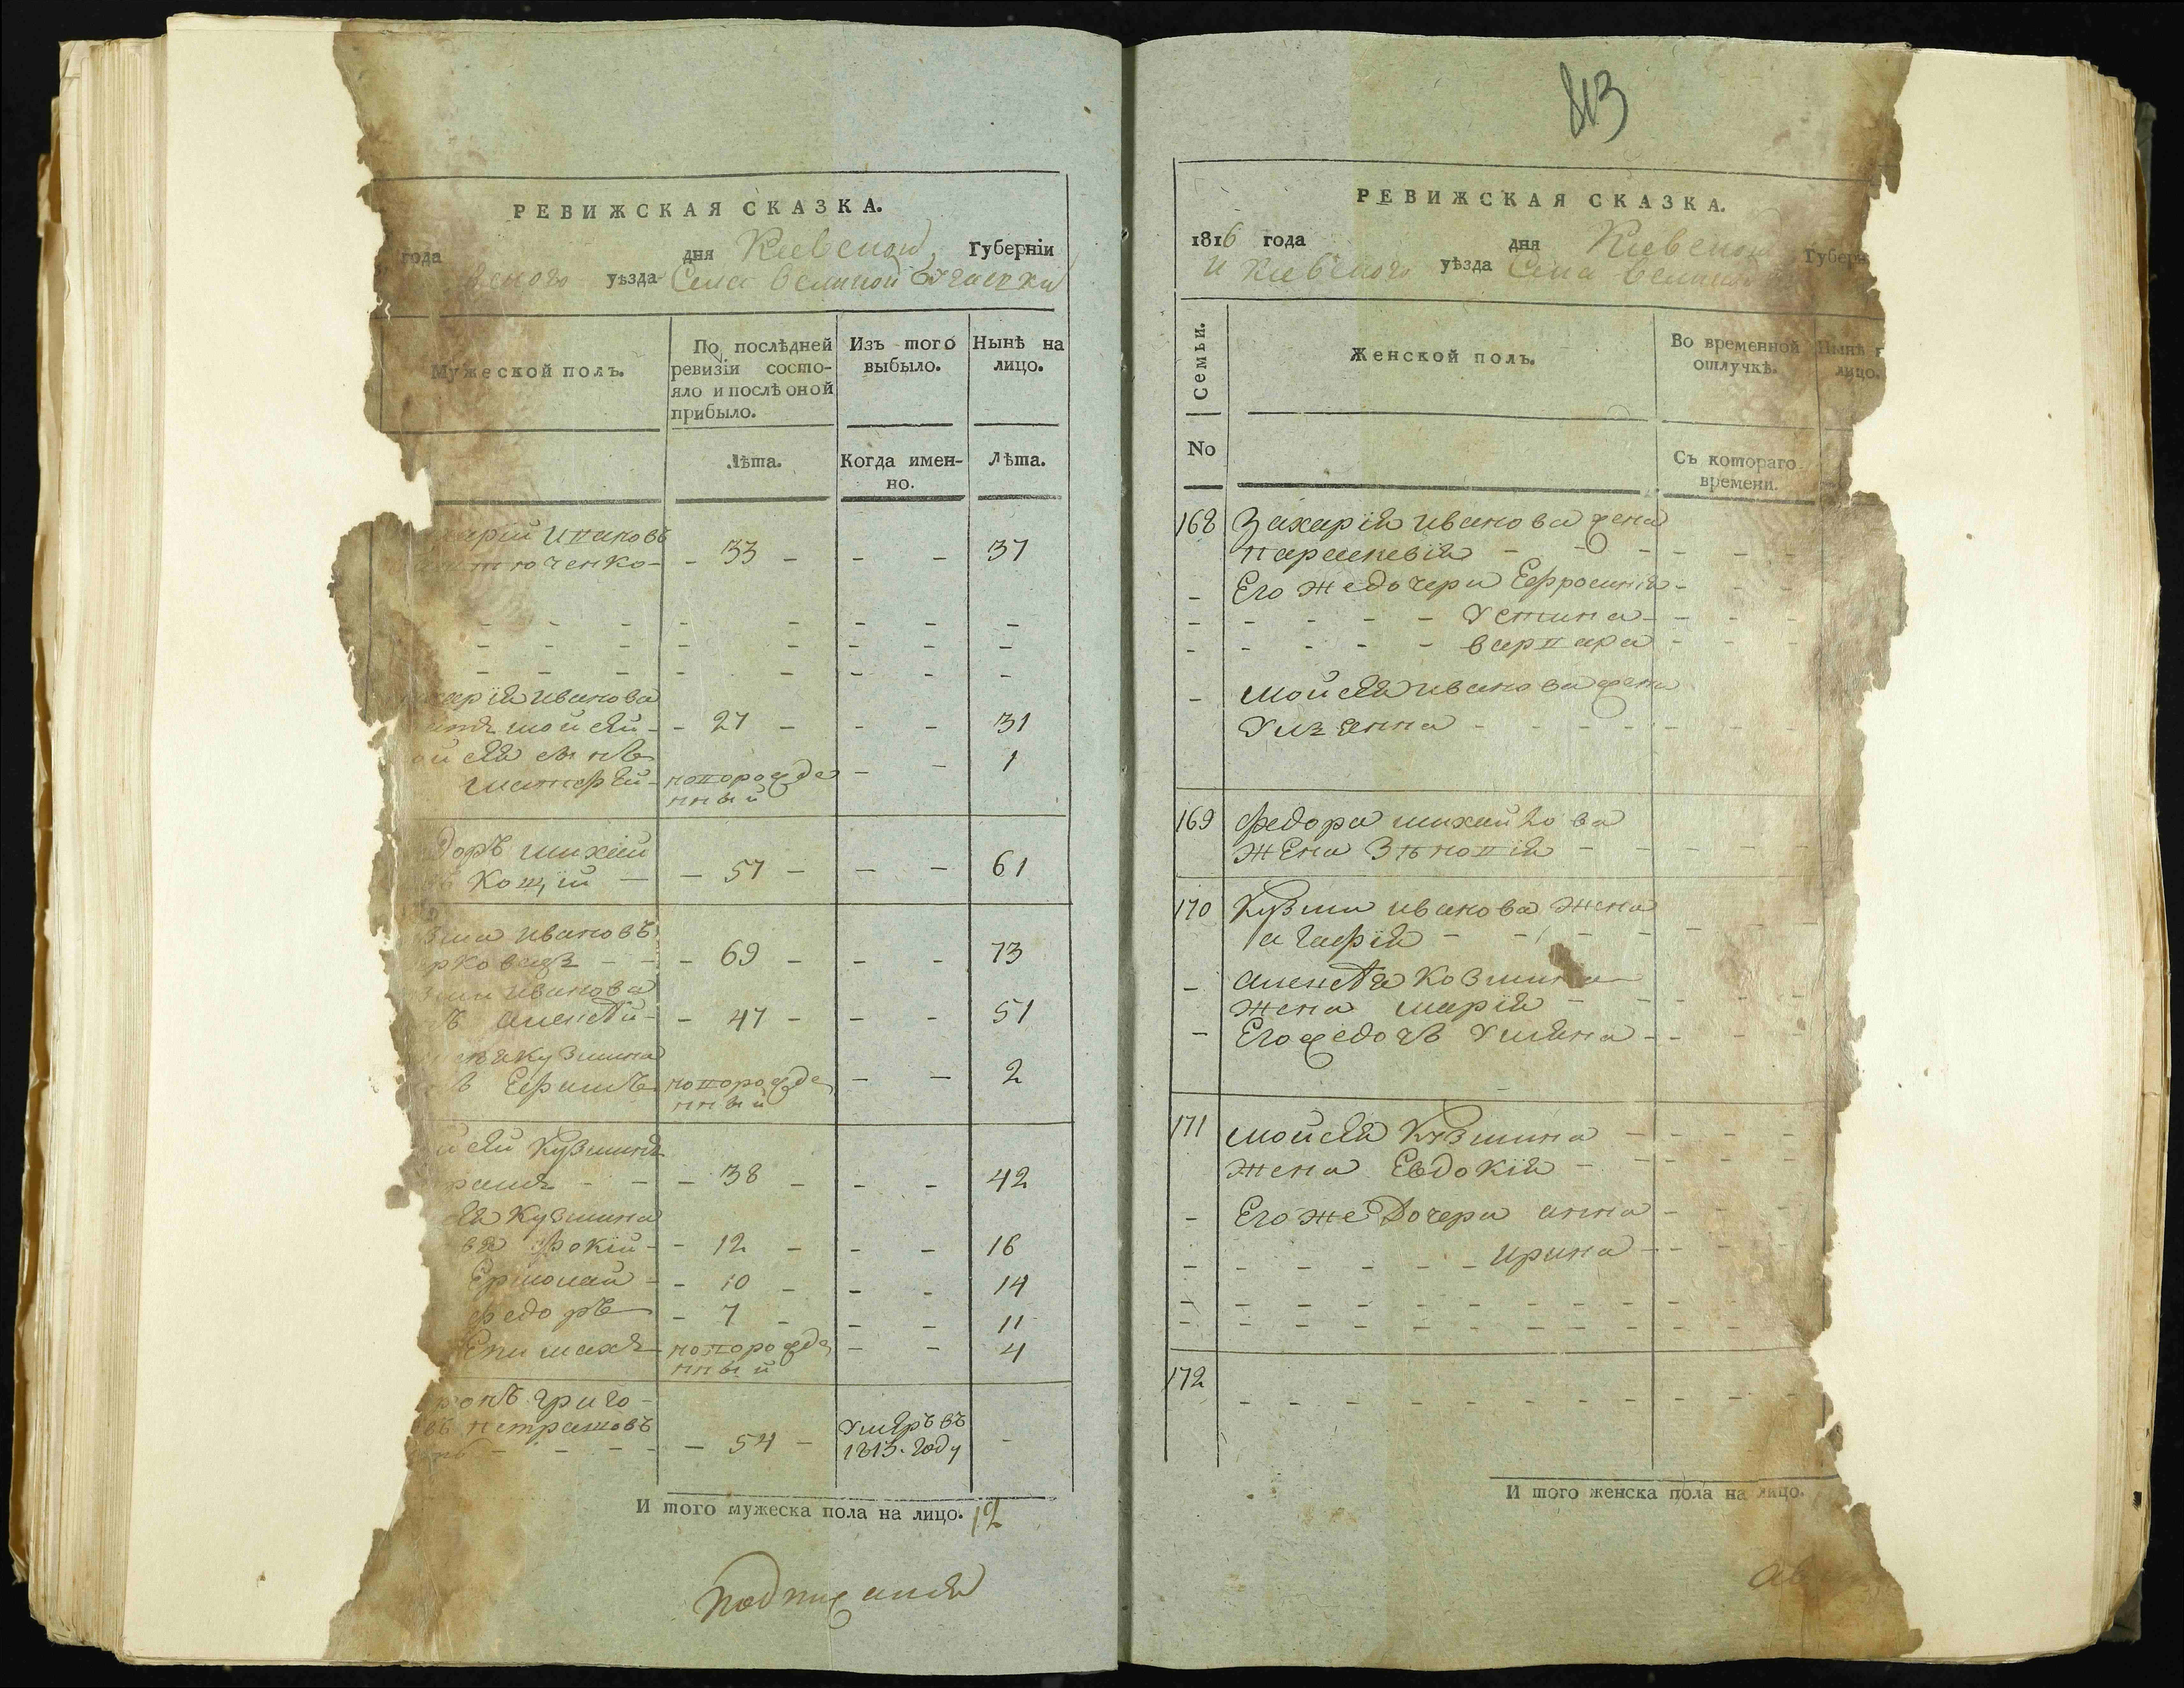 РЕВИЖСКАЯ СКАЗКА.
года дня Киевской Губерніи
вского уѣзда Села Великой
Мужеской полъ.
По послѣдней ревизіи состо-
яло и послѣ оной
прибыло.
Изъ того
выбыло.
Нынѣ на
лицо.
Лѣта.
Когда имен-
но.
Лѣта.
харій Ивановъ
тюченко - 33 - - - 37
харія Иванова
мойсей - 27 - - - 31
ойсея сынъ
матфей - новорожде
нный - - 1
доръ михай
Кощій - 57 - - - 61
зма Ивановъ
- 69 - - - 73
зми Иванова
алексѣй - 47 - - - 51
Кузмина
Ефимъ новорожде
нный - - 2
йсей Кузминъ
- 38 - - - 42
ея Кузмина
Фокій - 12 - - - 16
Ермолай - 10 - - - 14
федоръ - 7 - - - 11
Епимахъ новорожде
нный - - 4
ронъ григо
въ петрашовъ
- 54 - Умеръ въ
1813. году -
И того мужеска пола на лицо. 12
813
РЕВИЖСКАЯ СКАЗКА.
1816 года дня Киевской Губерн
И Киевского уѣзда Села Велико
Семьи.
No
Женской полъ.
Во временной
отлучкѣ.
Нынѣ н
лицо.
Съ котораго
времени.
168 Захарія Иванова жена
параскевія
Его же дочери Ефросинія
Устина
варвара
мойсея Иванова жена
Улияна
169 федора михайлова
жена Зѣновія
170 Кузми Иванова жена
агафія
алексѣя Козмина
жена марія
Его же дочь Уляна
171 мойсея Кузмина
жена Евдокія
Его же Дочери анна
Ирина
172
И того женска пола на лицо.